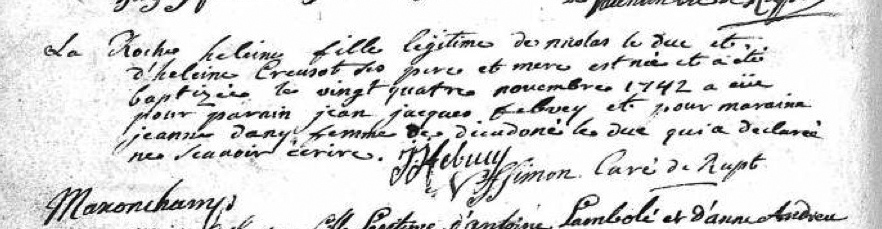 La Roche heleine fille légitime de nicolas le duc et
d'heleine Creusot ses pere et mere est née et a été
baptizée le vingt quatre novembre 1742 a eüe
pour parain jean jacques febvey et pour maraine
jeanne dany femme de dieudoné le duc qui a declarée
ne scavoir écrire. JJfebvey
JSimon Curé de Rupt
Maxonchamp
fille légitime d'antoine Lambolé et d'anne Andreu